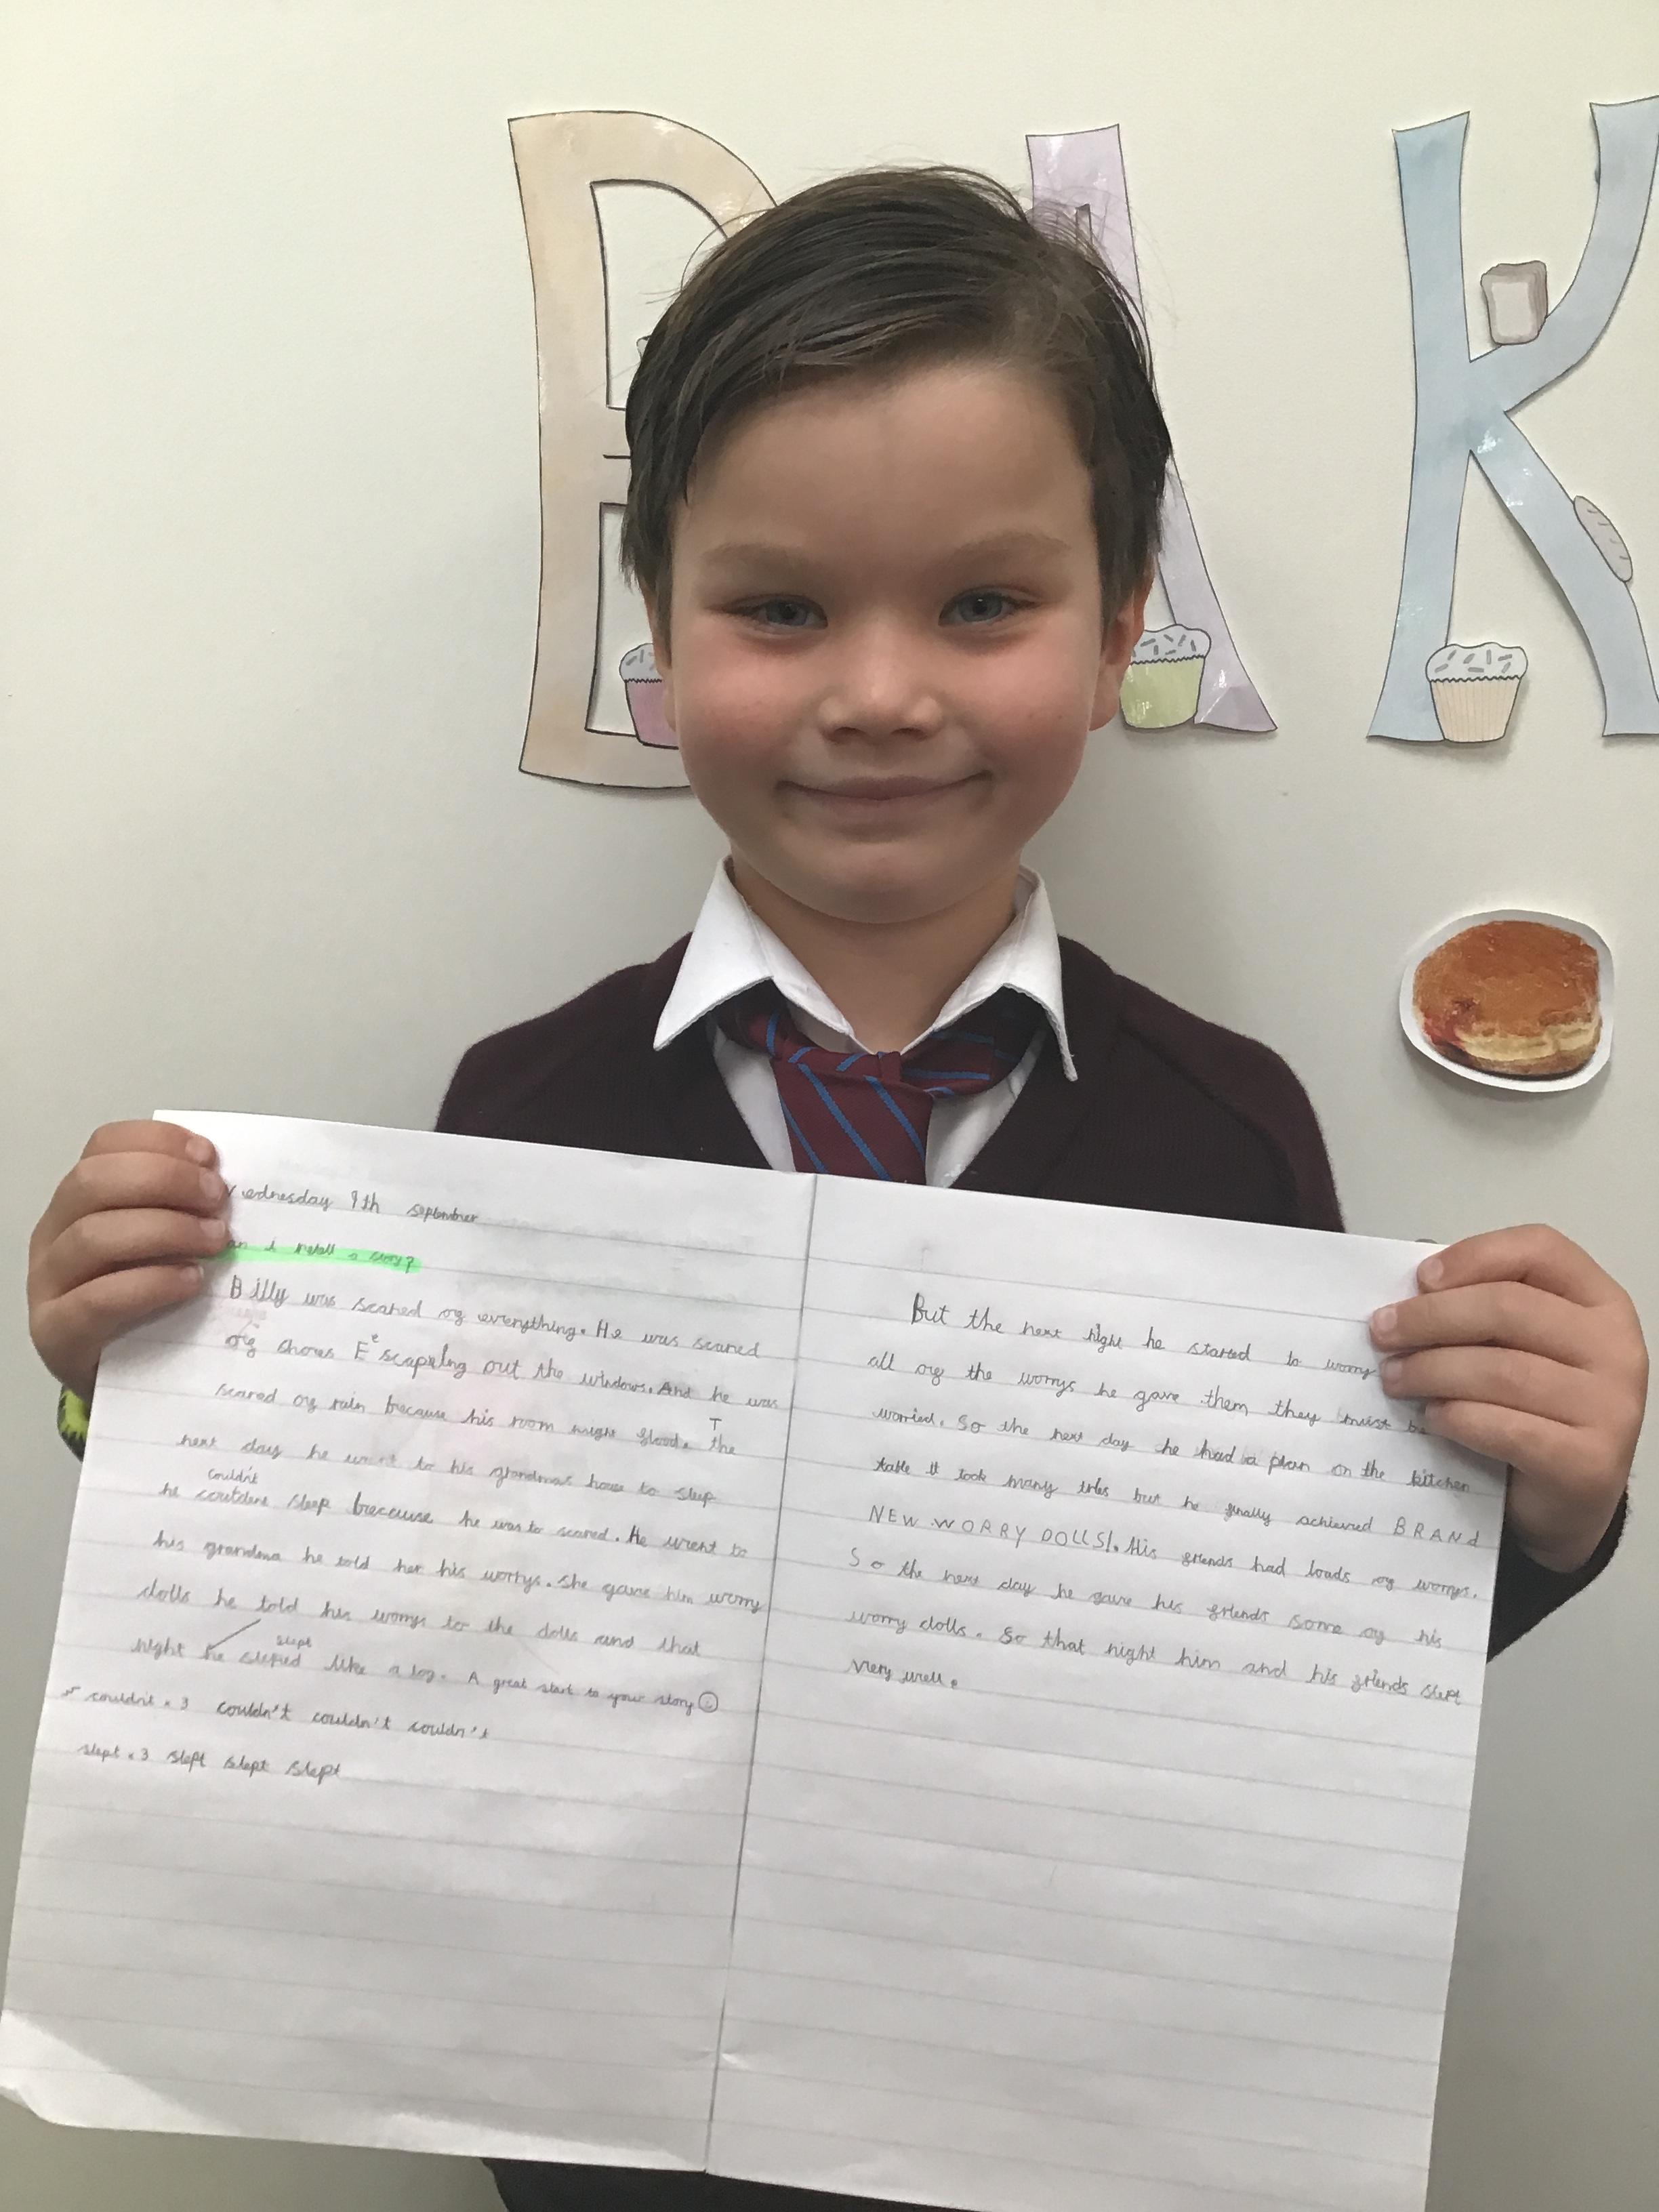 BAK
Wednesday 9th September
an i retell a story?
Billy was scared of everything. He was scared
of shows Eescapeing out the windows. And he was
scared of rain because his room might flood. T the
next day he went to his grandmas house to sleep
couldn't
he couldent sleep breccause he was to scared. He went to
his grandma he told her his worrys. She gave him worry
dolls he told his worrys to the dolls and that
slept
night he sleped like a log. A great start to your story
couldn't x 3 couldn't couldn't couldn't
slept x 3 slept slept slept
But the next night he started to worry
all of the worrys he gave them they must be
worried. So the next day he had a plan on the kitchen
table it took many tries but he finally achieved BRANd
NEW WORRY DOLLS!. His friends had loads of worrys.
So the next day he gave his friends some of his
worry dolls. So that night him and his friends slept
very well.